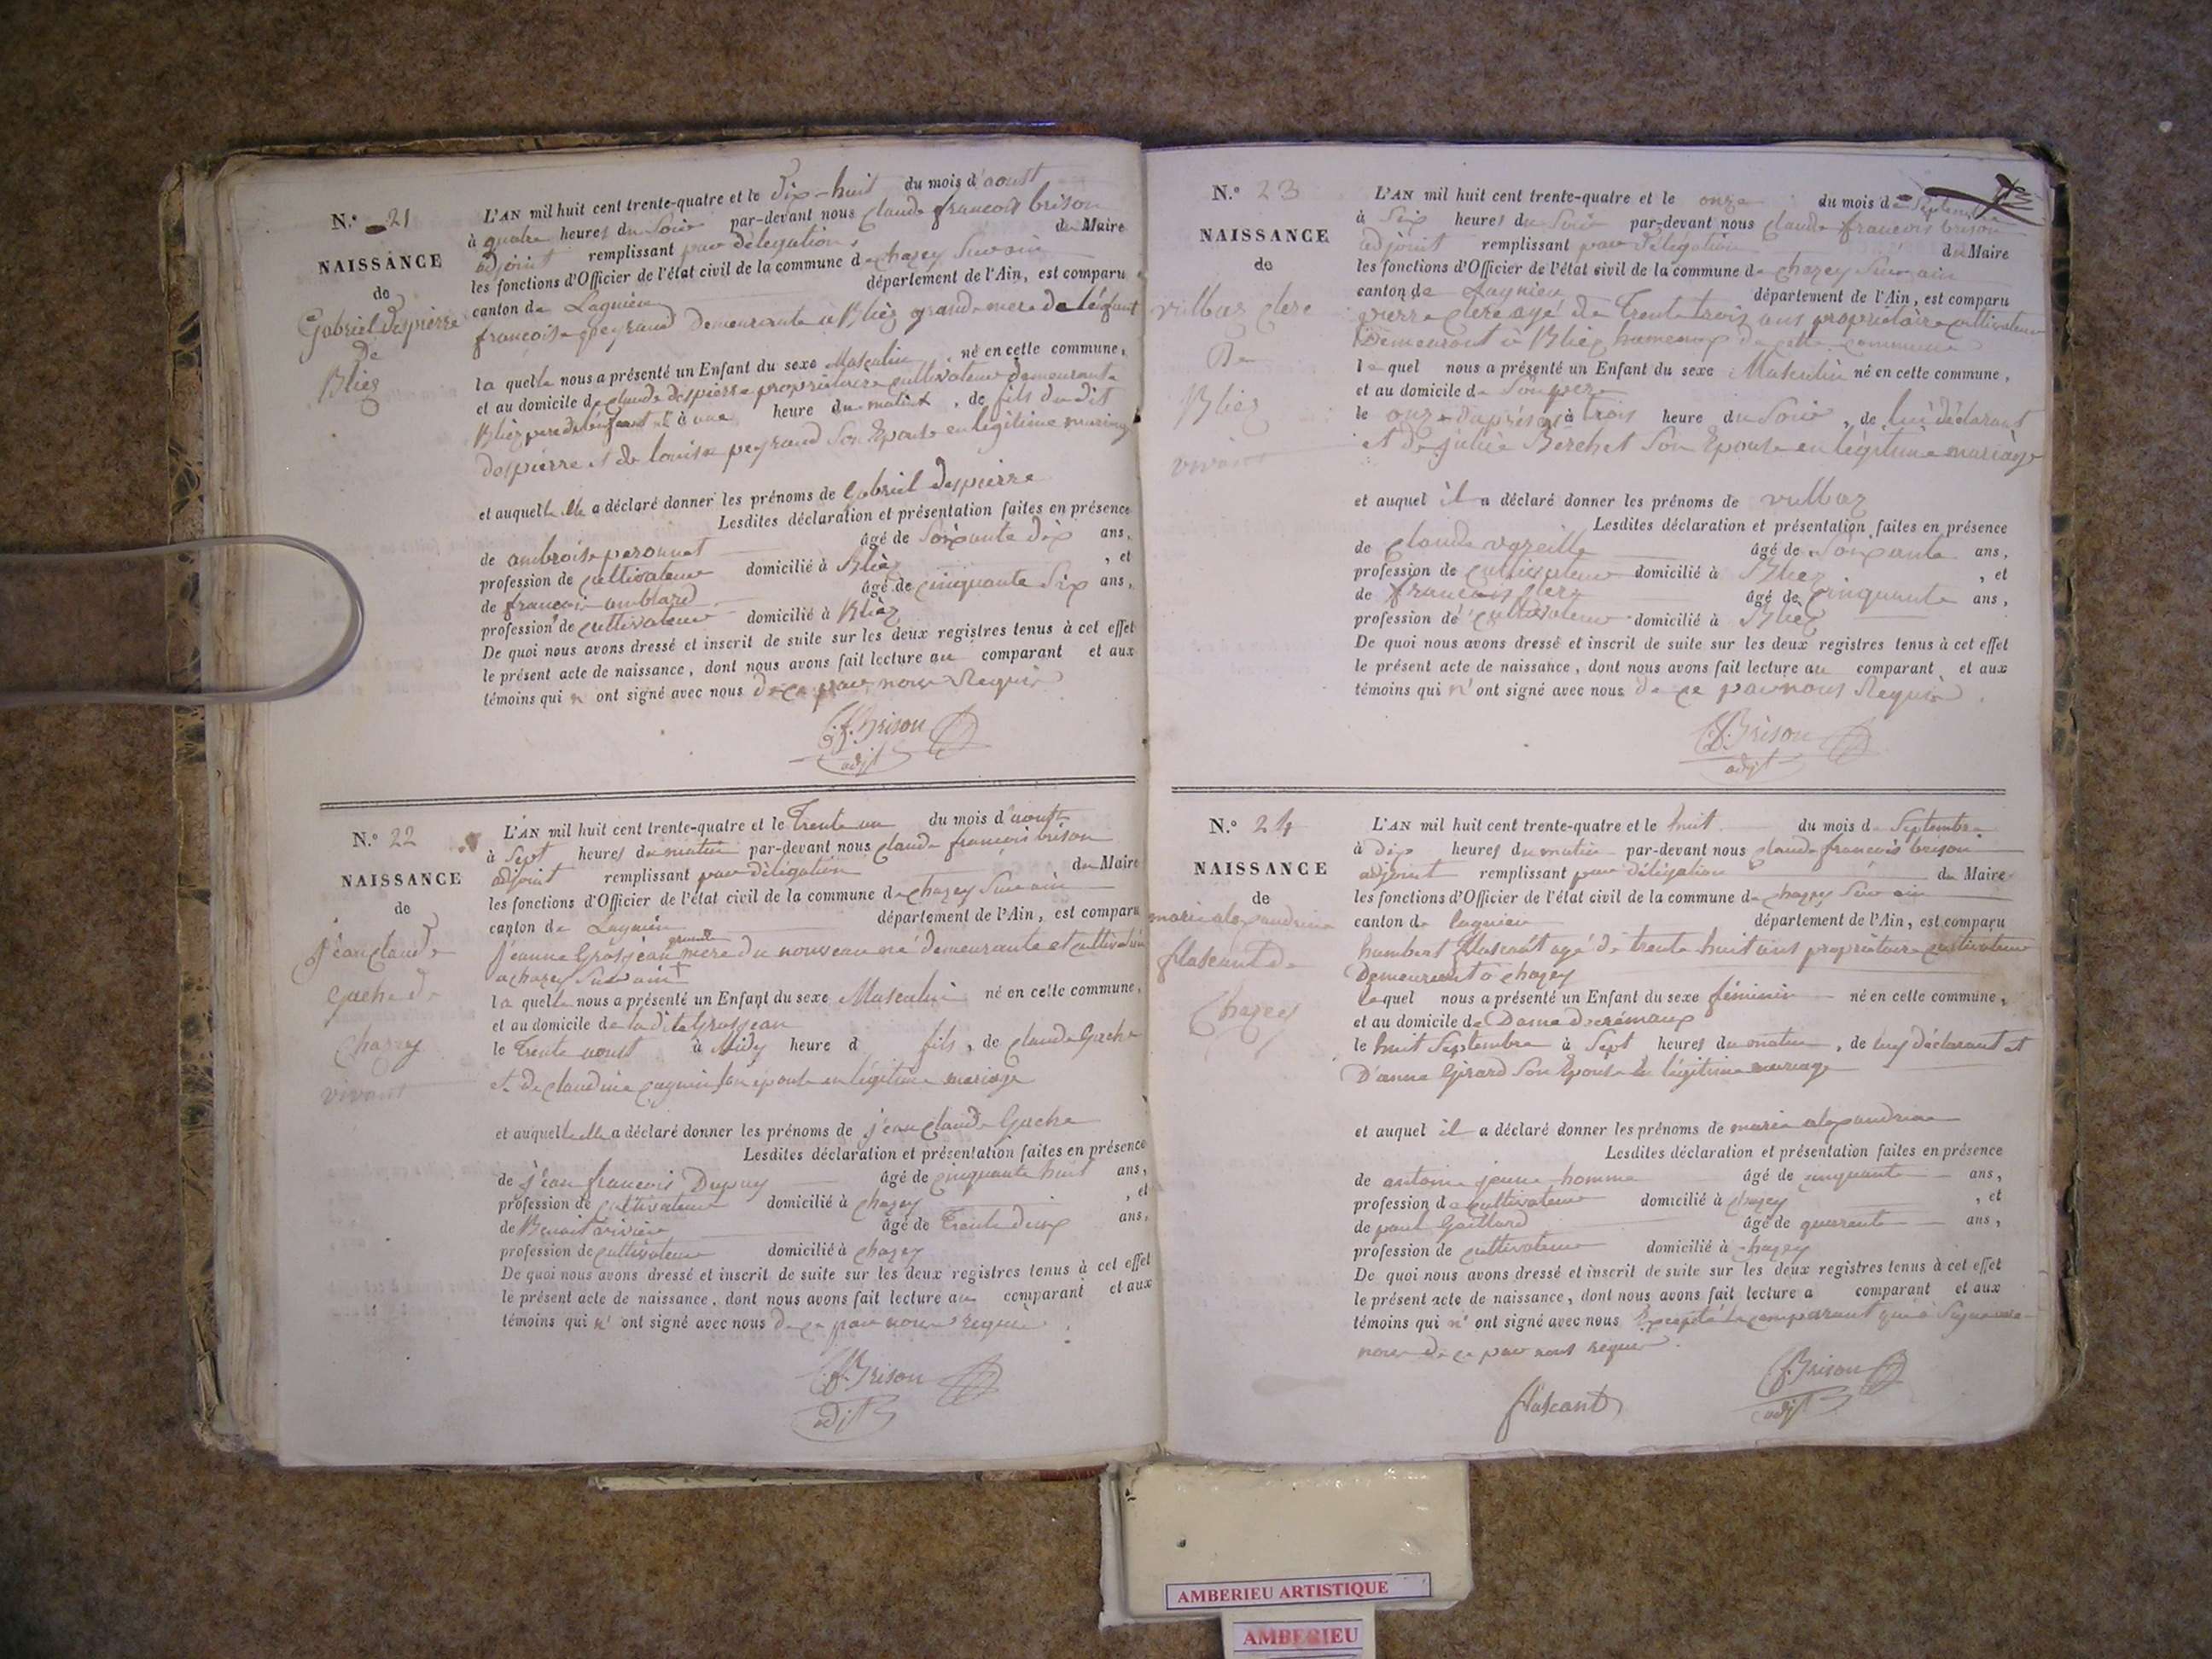 N.o 21
NAISSANCE
de
Gabriel despierre
de
Bliez
L'AN mil huit cent trente-quatre et le dix-huit du mois d'aoust
à quatre heures du Soir par-devant nous Claude francois brison
adjoint remplissant par délégation du Maire
les fonctions d'Officier de l'état civil de la commune de chazey Sur ain
canton de Lagnieu département de l'Ain, est comparu
francoise peyraud demeurante à Bliez grande mere de l'enfant
la quelle nous a présenté un Enfant du sexe Masculin né en cette commune,
et au domicile de claude despierre propriétaire cultivateur demeurant a
Bliez pere de l'enfant à une heure du matin, de fils du dit
despierre et de louise peyraud Son Epouse en légitime mariage
et auquel elle a déclaré donner les prénoms de Gabriel despierre
Lesdites déclaration et présentation faites en présence
de ambroise peronnet âgé de Soixante dix ans,
profession de cultivateur domicilié à Bliez, et
de francois amblard âgé de cinquante Six ans,
profession de cultivateur domicilié à Bliez
De quoi nous avons dressé et inscrit de suite sur les deux registres tenus à cet effet
le présent acte de naissance, dont nous avons fait lecture au comparant et aux
témoins qui n ont signé avec nous de ce par nous Requis
C. f. Brison
adjt
N.o 22
NAISSANCE
de
jean claude
Gache de
Chazey
vivant
L'AN mil huit cent trente-quatre et le Trente un du mois d'aoust
à Sept heures du matin par-devant nous claude francois brison
adjoint remplissant par délégation du Maire
les fonctions d'Officier de l'état civil de la commune de chazey Sur ain
canton de Lagnieu département de l'Ain, est comparu
jeanne Grosjean grande mere du nouveau né demeurante et
a chazey Sur ain
la quelle nous a présenté un Enfant du sexe Masculin né en cette commune,
et au domicile de la dite Grosjean
le Trente aoust à Midy heure d fils, de claude Gache
et de claudine Son épouse en légitime mariage
et auquel elle a déclaré donner les prénoms de jean claude Gache
Lesdites déclaration et présentation faites en présence
de jean francois Dupuy âgé de cinquante huit ans,
profession de cultivateur domicilié à chazey, et
de Benoit âgé de Trente deux ans,
profession de cultivateur domicilié à chazey
De quoi nous avons dressé et inscrit de suite sur les deux registres tenus à cet effet
le présent acte de naissance, dont nous avons fait lecture au comparant et aux
témoins qui n' ont signé avec nous de ce par nous requis
C. f. Brison
adjt
N.o 23
NAISSANCE
de
vulbaz clerc
De
Bliez
vivant
L'AN mil huit cent trente-quatre et le onze du mois de Septembre
à Six heures du Soir par-devant nous claude francois brison
adjoint remplissant par délégation du Maire
les fonctions d'Officier de l'état civil de la commune de chazey Sur ain
canton de Lagnieu département de l'Ain, est comparu
pierre clerc agé de Trente trois ans propriétaire cultivateur
Demeurant à Bliez hameaux de cette commune
le quel nous a présenté un Enfant du sexe Masculin né en cette commune,
et au domicile de
le onze à trois heure du Soir, de lui déclarant
et de julie Berchet Son Epouse en légitime mariage
et auquel il a déclaré donner les prénoms de vulbaz
Lesdites déclaration et présentation faites en présence
de claude vareille âgé de Soixante ans,
profession de cultivateur domicilié à Bliez, et
de francois clerc âgé de cinquante ans,
profession de cultivateur domicilié à Bliez
De quoi nous avons dressé et inscrit de suite sur les deux registres tenus à cet effet
le présent acte de naissance, dont nous avons fait lecture au comparant et aux
témoins qui n' ont signé avec nous de ce par nous Requis
C. f. Brison
adjt
N.o 24
NAISSANCE
de
marie alexandrine
flascant de
Chazey
L'AN mil huit cent trente-quatre et le huit du mois de Septembre
à dix heures du matin par-devant nous claude francois brison
adjoint remplissant par délégation du Maire
les fonctions d'Officier de l'état civil de la commune de chazey Sur ain
canton de lagnieu département de l'Ain, est comparu
humbert flascant agé de trente huit ans propriétaire cultivateur
Demeurant à chazey
Le quel nous a présenté un Enfant du sexe féminin né en cette commune,
et au domicile de Dame
le huit Septembre à Sept heures du matin, de luy déclarant et
D'anne Girard Son Epouse légitime mariage
et auquel il a déclaré donner les prénoms de marie alexandrine
Lesdites déclaration et présentation faites en présence
de antoine jeune homme âgé de cinquante ans,
profession de cultivateur domicilié à chazey, et
de paul Gaillard âgé de quarante ans,
profession de cultivateur domicilié à chazey
De quoi nous avons dressé et inscrit de suite sur les deux registres tenus à cet effet
le présent acte de naissance, dont nous avons fait lecture a comparant et aux
témoins qui n' ont signé avec nous Excepté le comparant qui à Signé avec
nous de ce par nous requis
flascant
C. f. Brison
adjt
AMBERIEU ARTISTIQUE
AMBERIEU